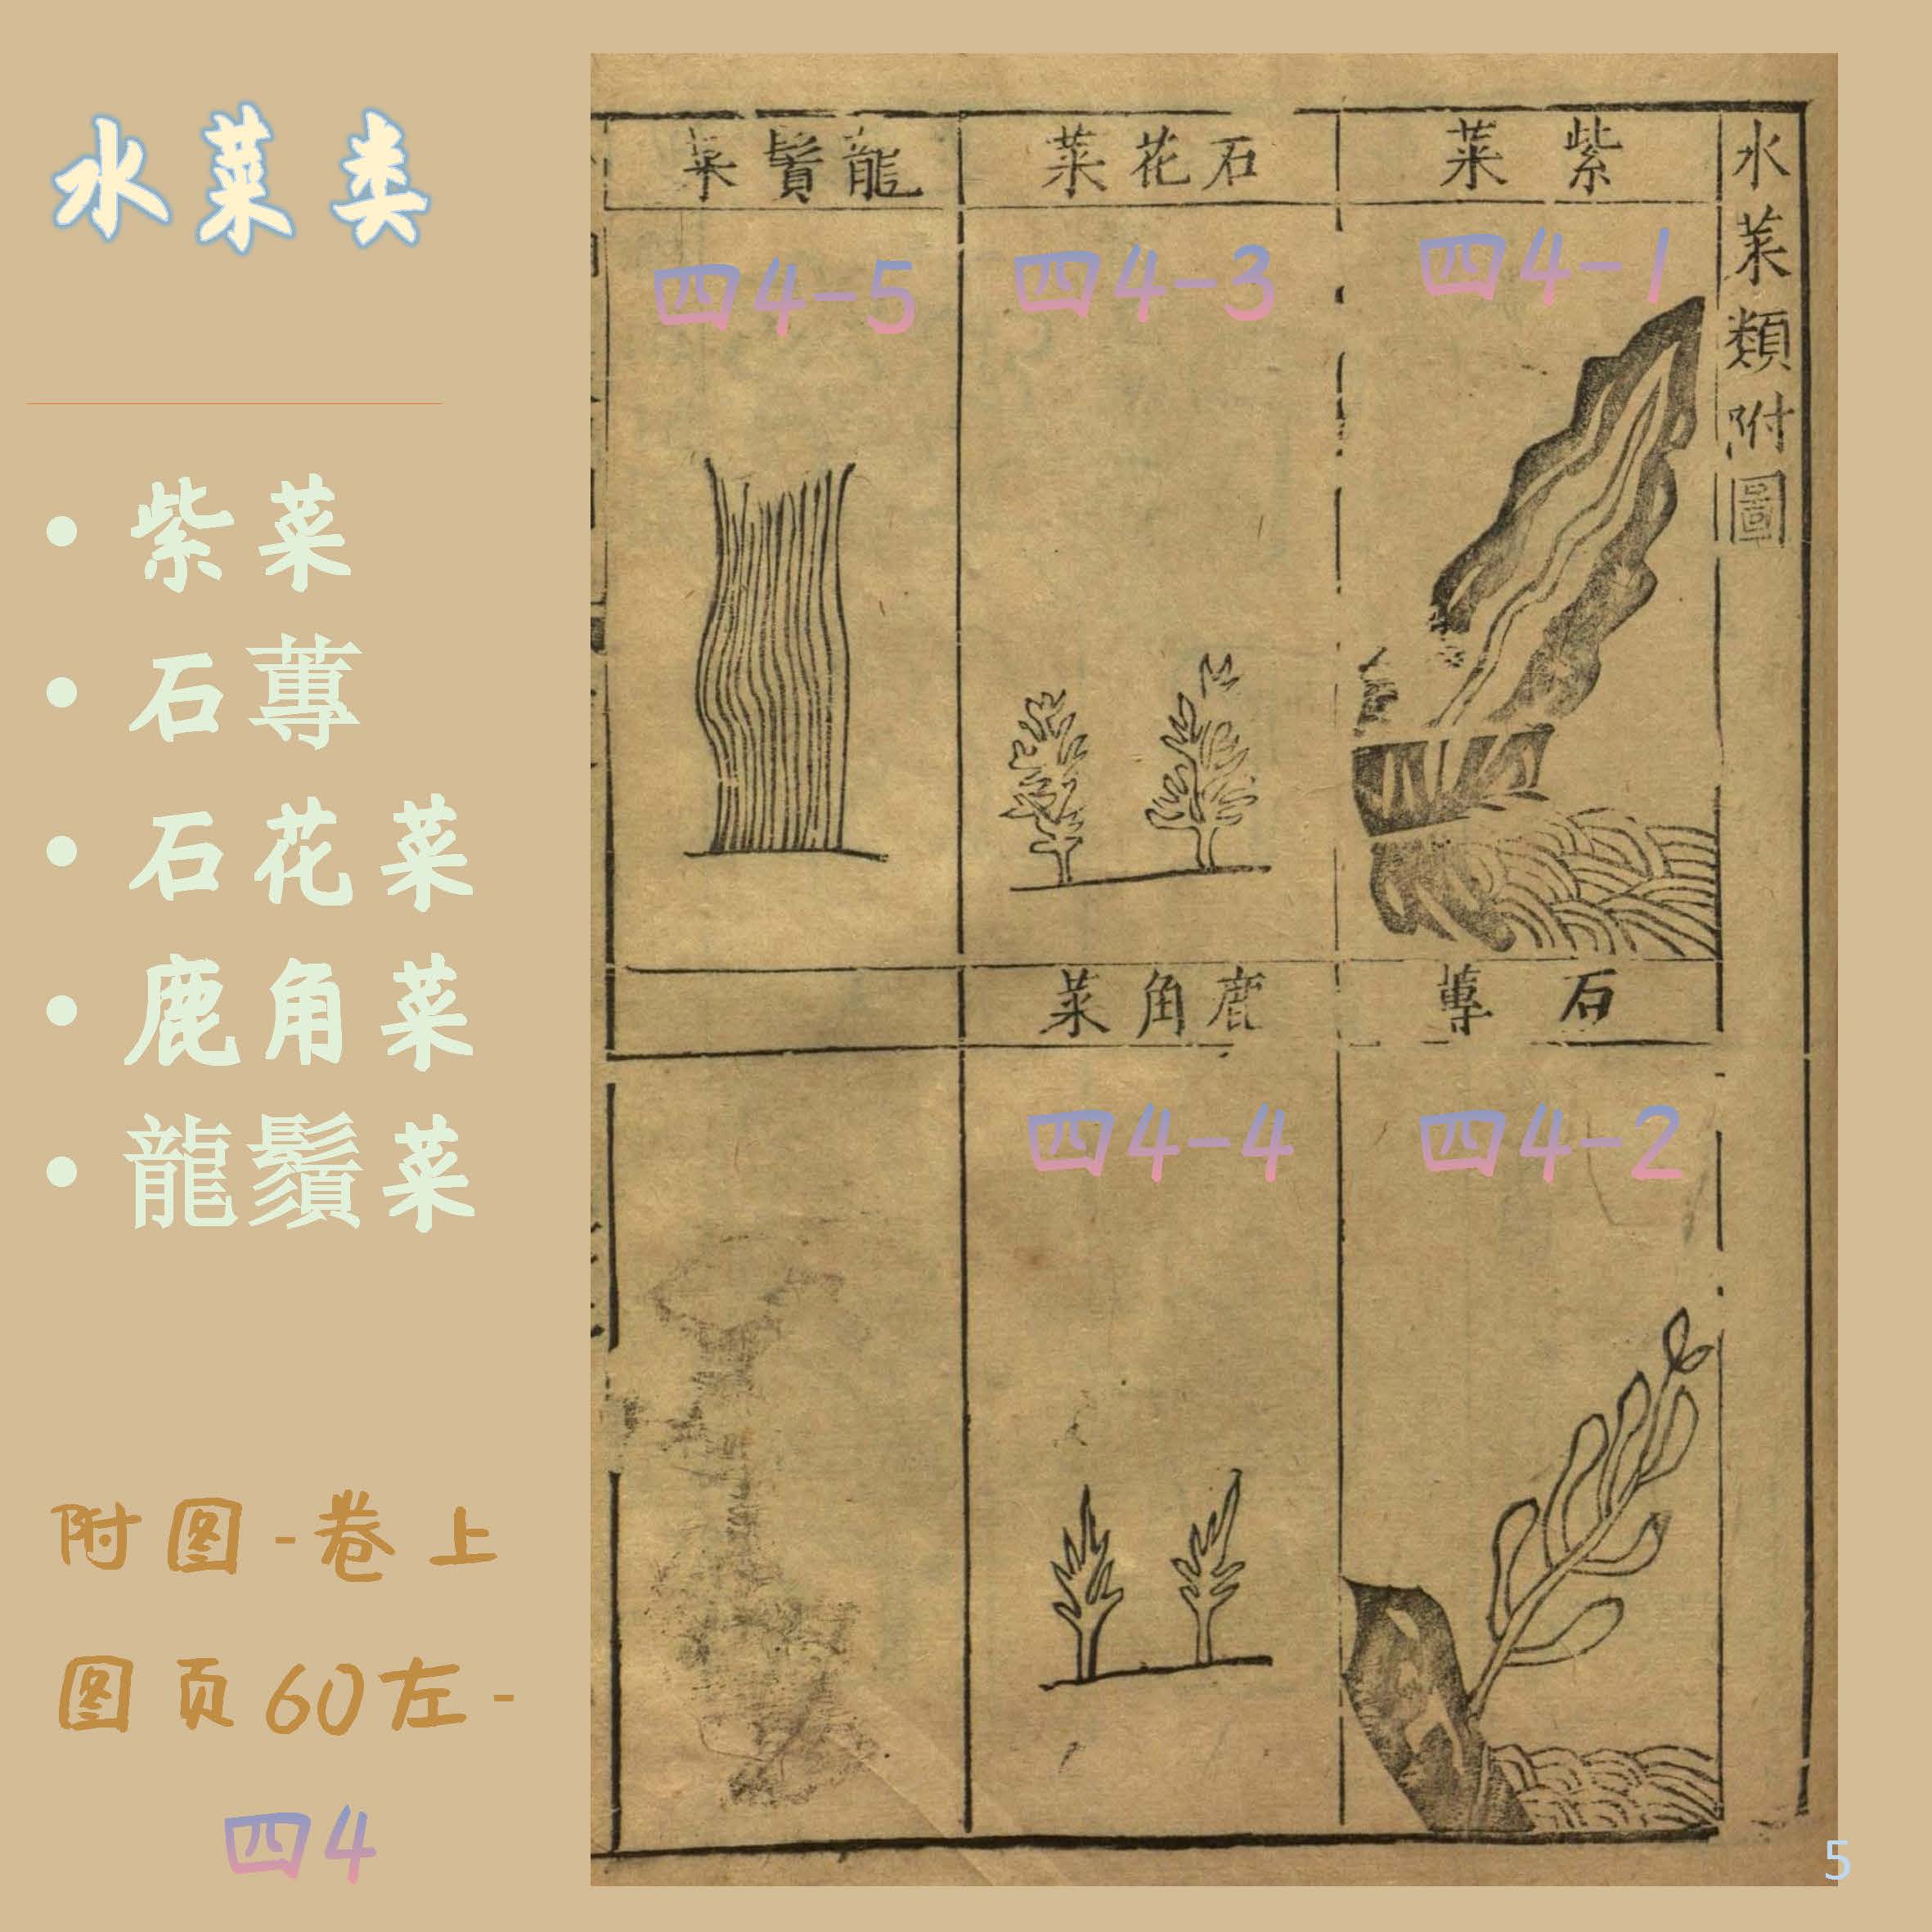 水菜类
• 紫菜
• 石蓴
• 石花菜
• 鹿角菜
• 龍鬚菜
附图-卷上
图页60左-
四4
水菜類附圖
紫菜
四4-1
石蓴
四4-2
石花菜
四4-3
鹿角菜
四4-4
龍鬚菜
四4-5
5